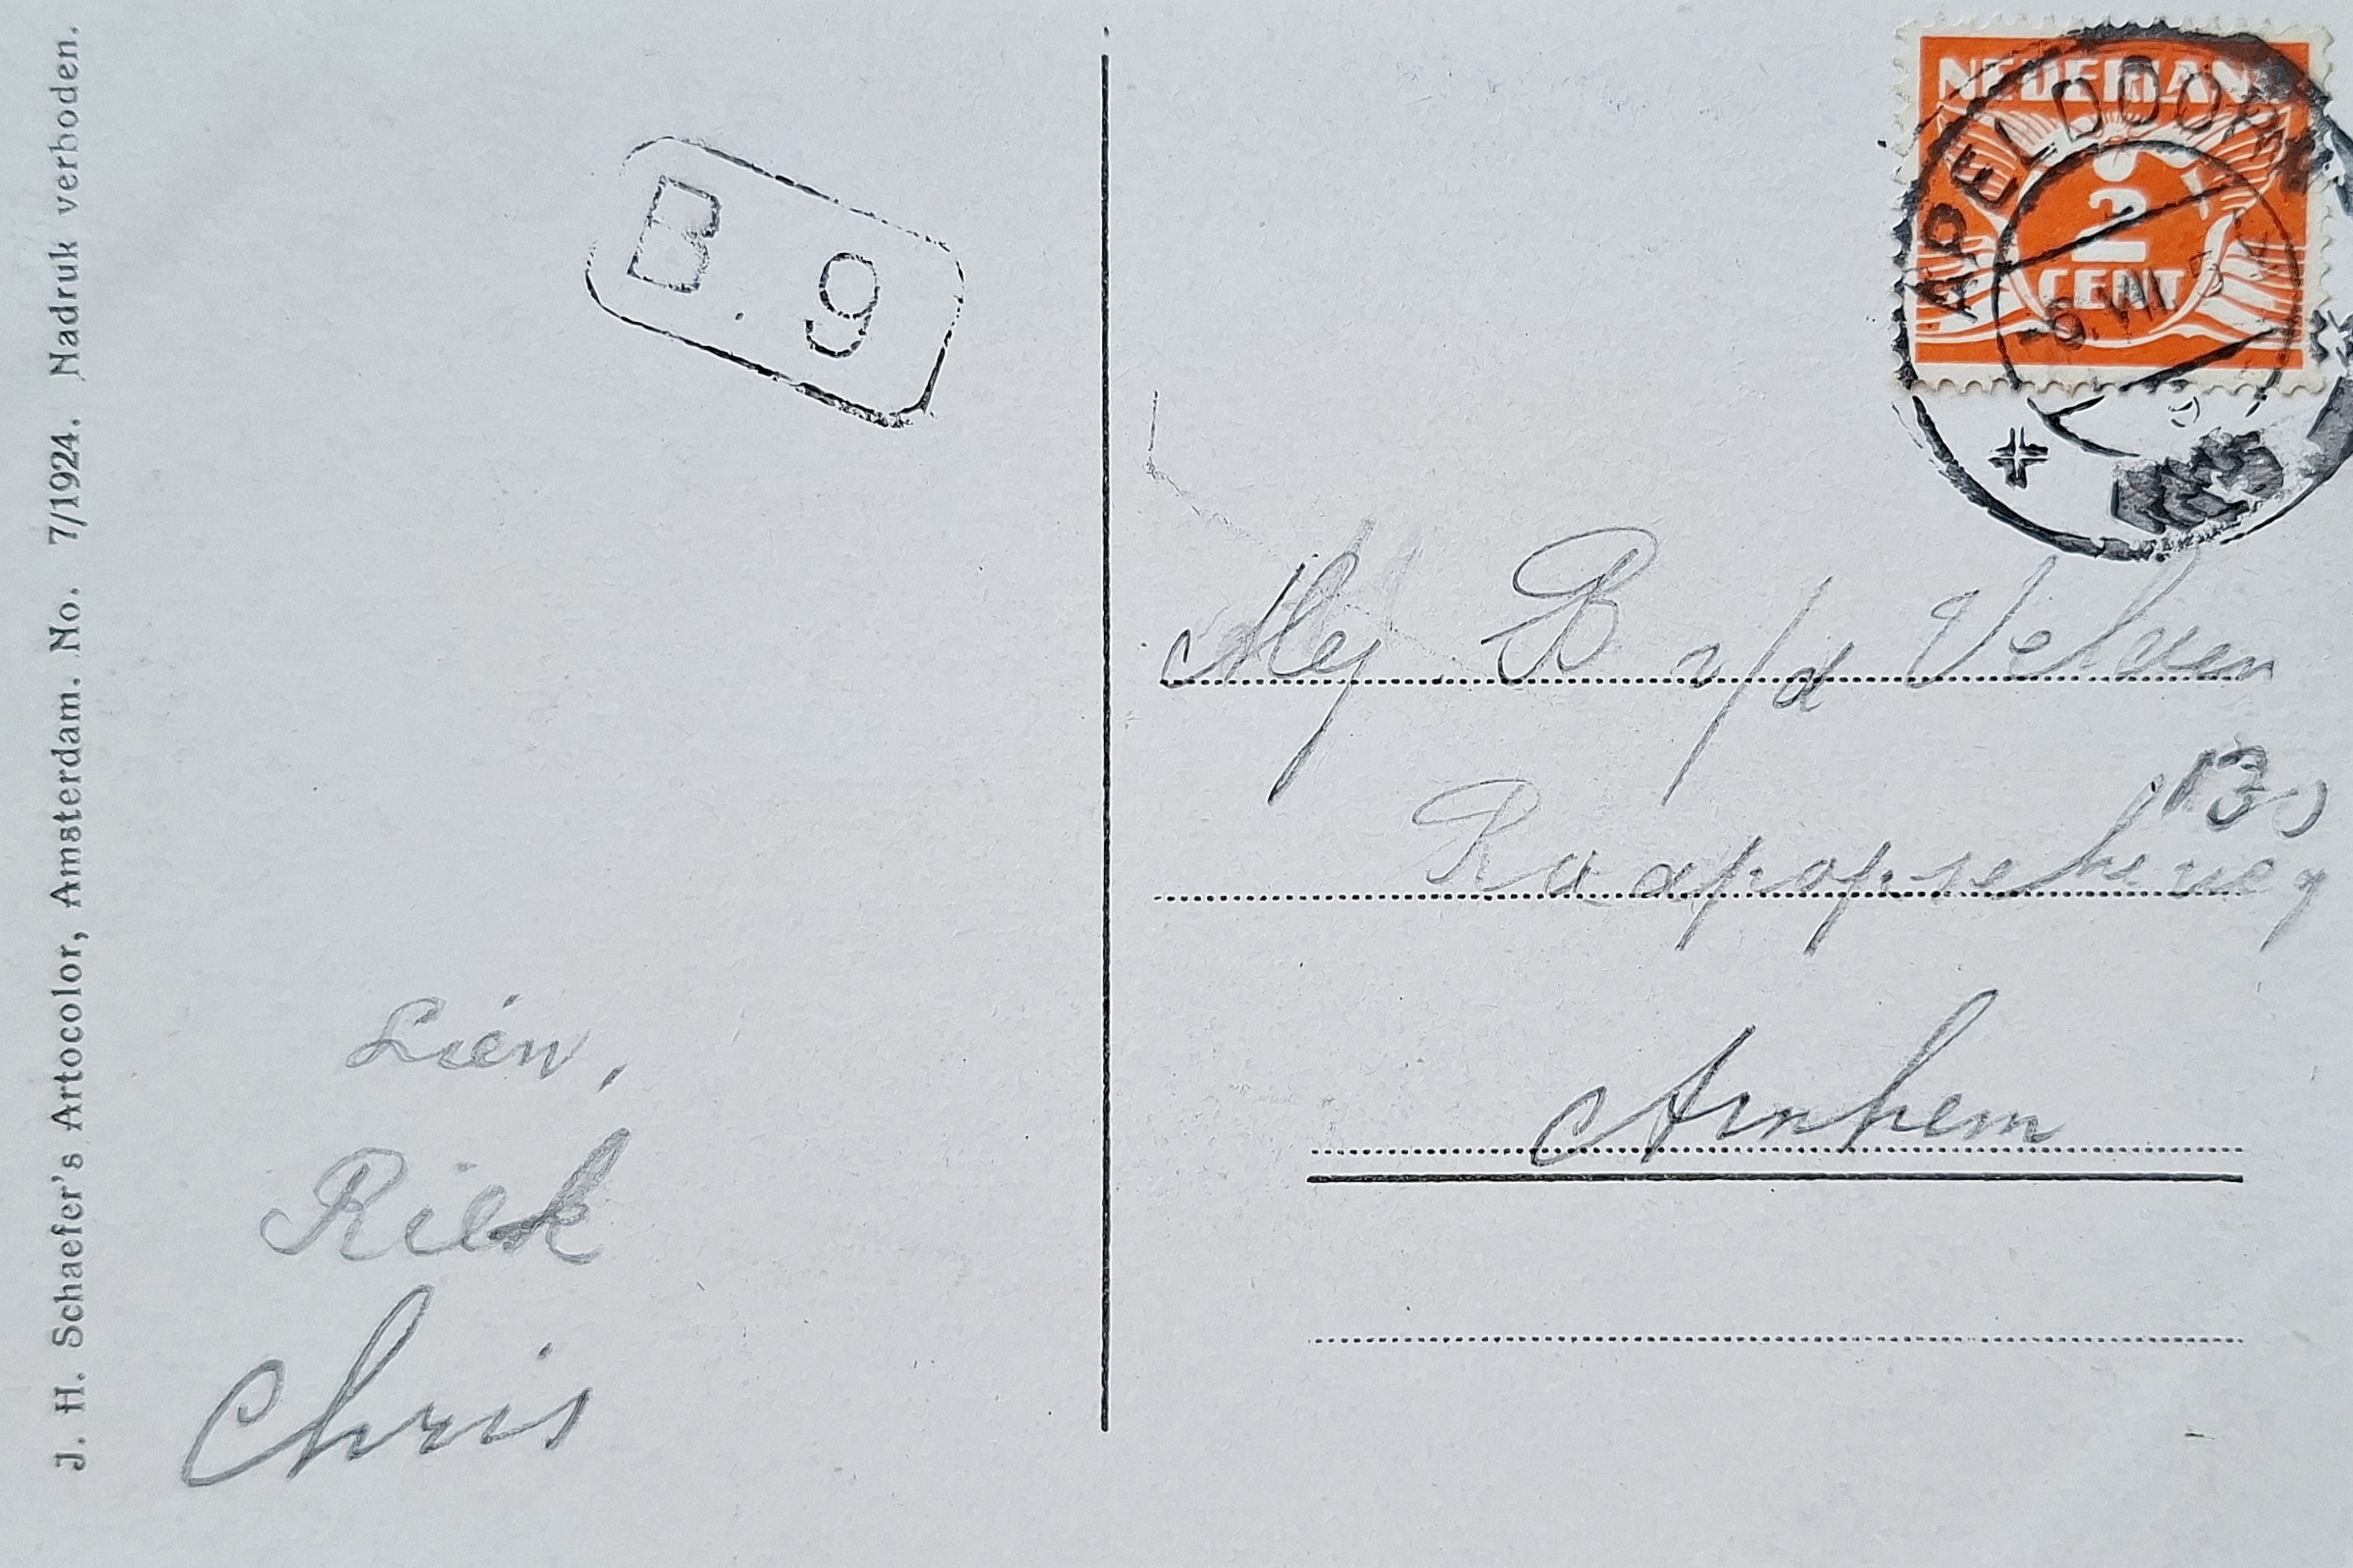 J. H. Schaefer's Artocolor, Amsterdam. No. 7/1924. Nadruk verboden.
B. 9
Lien,
Riek
Chris
NEDERLAND
2
CENT
APELDOORN
-6.VII.
Mej B v/d Velven
130
Raapopscheweg
Arnhem